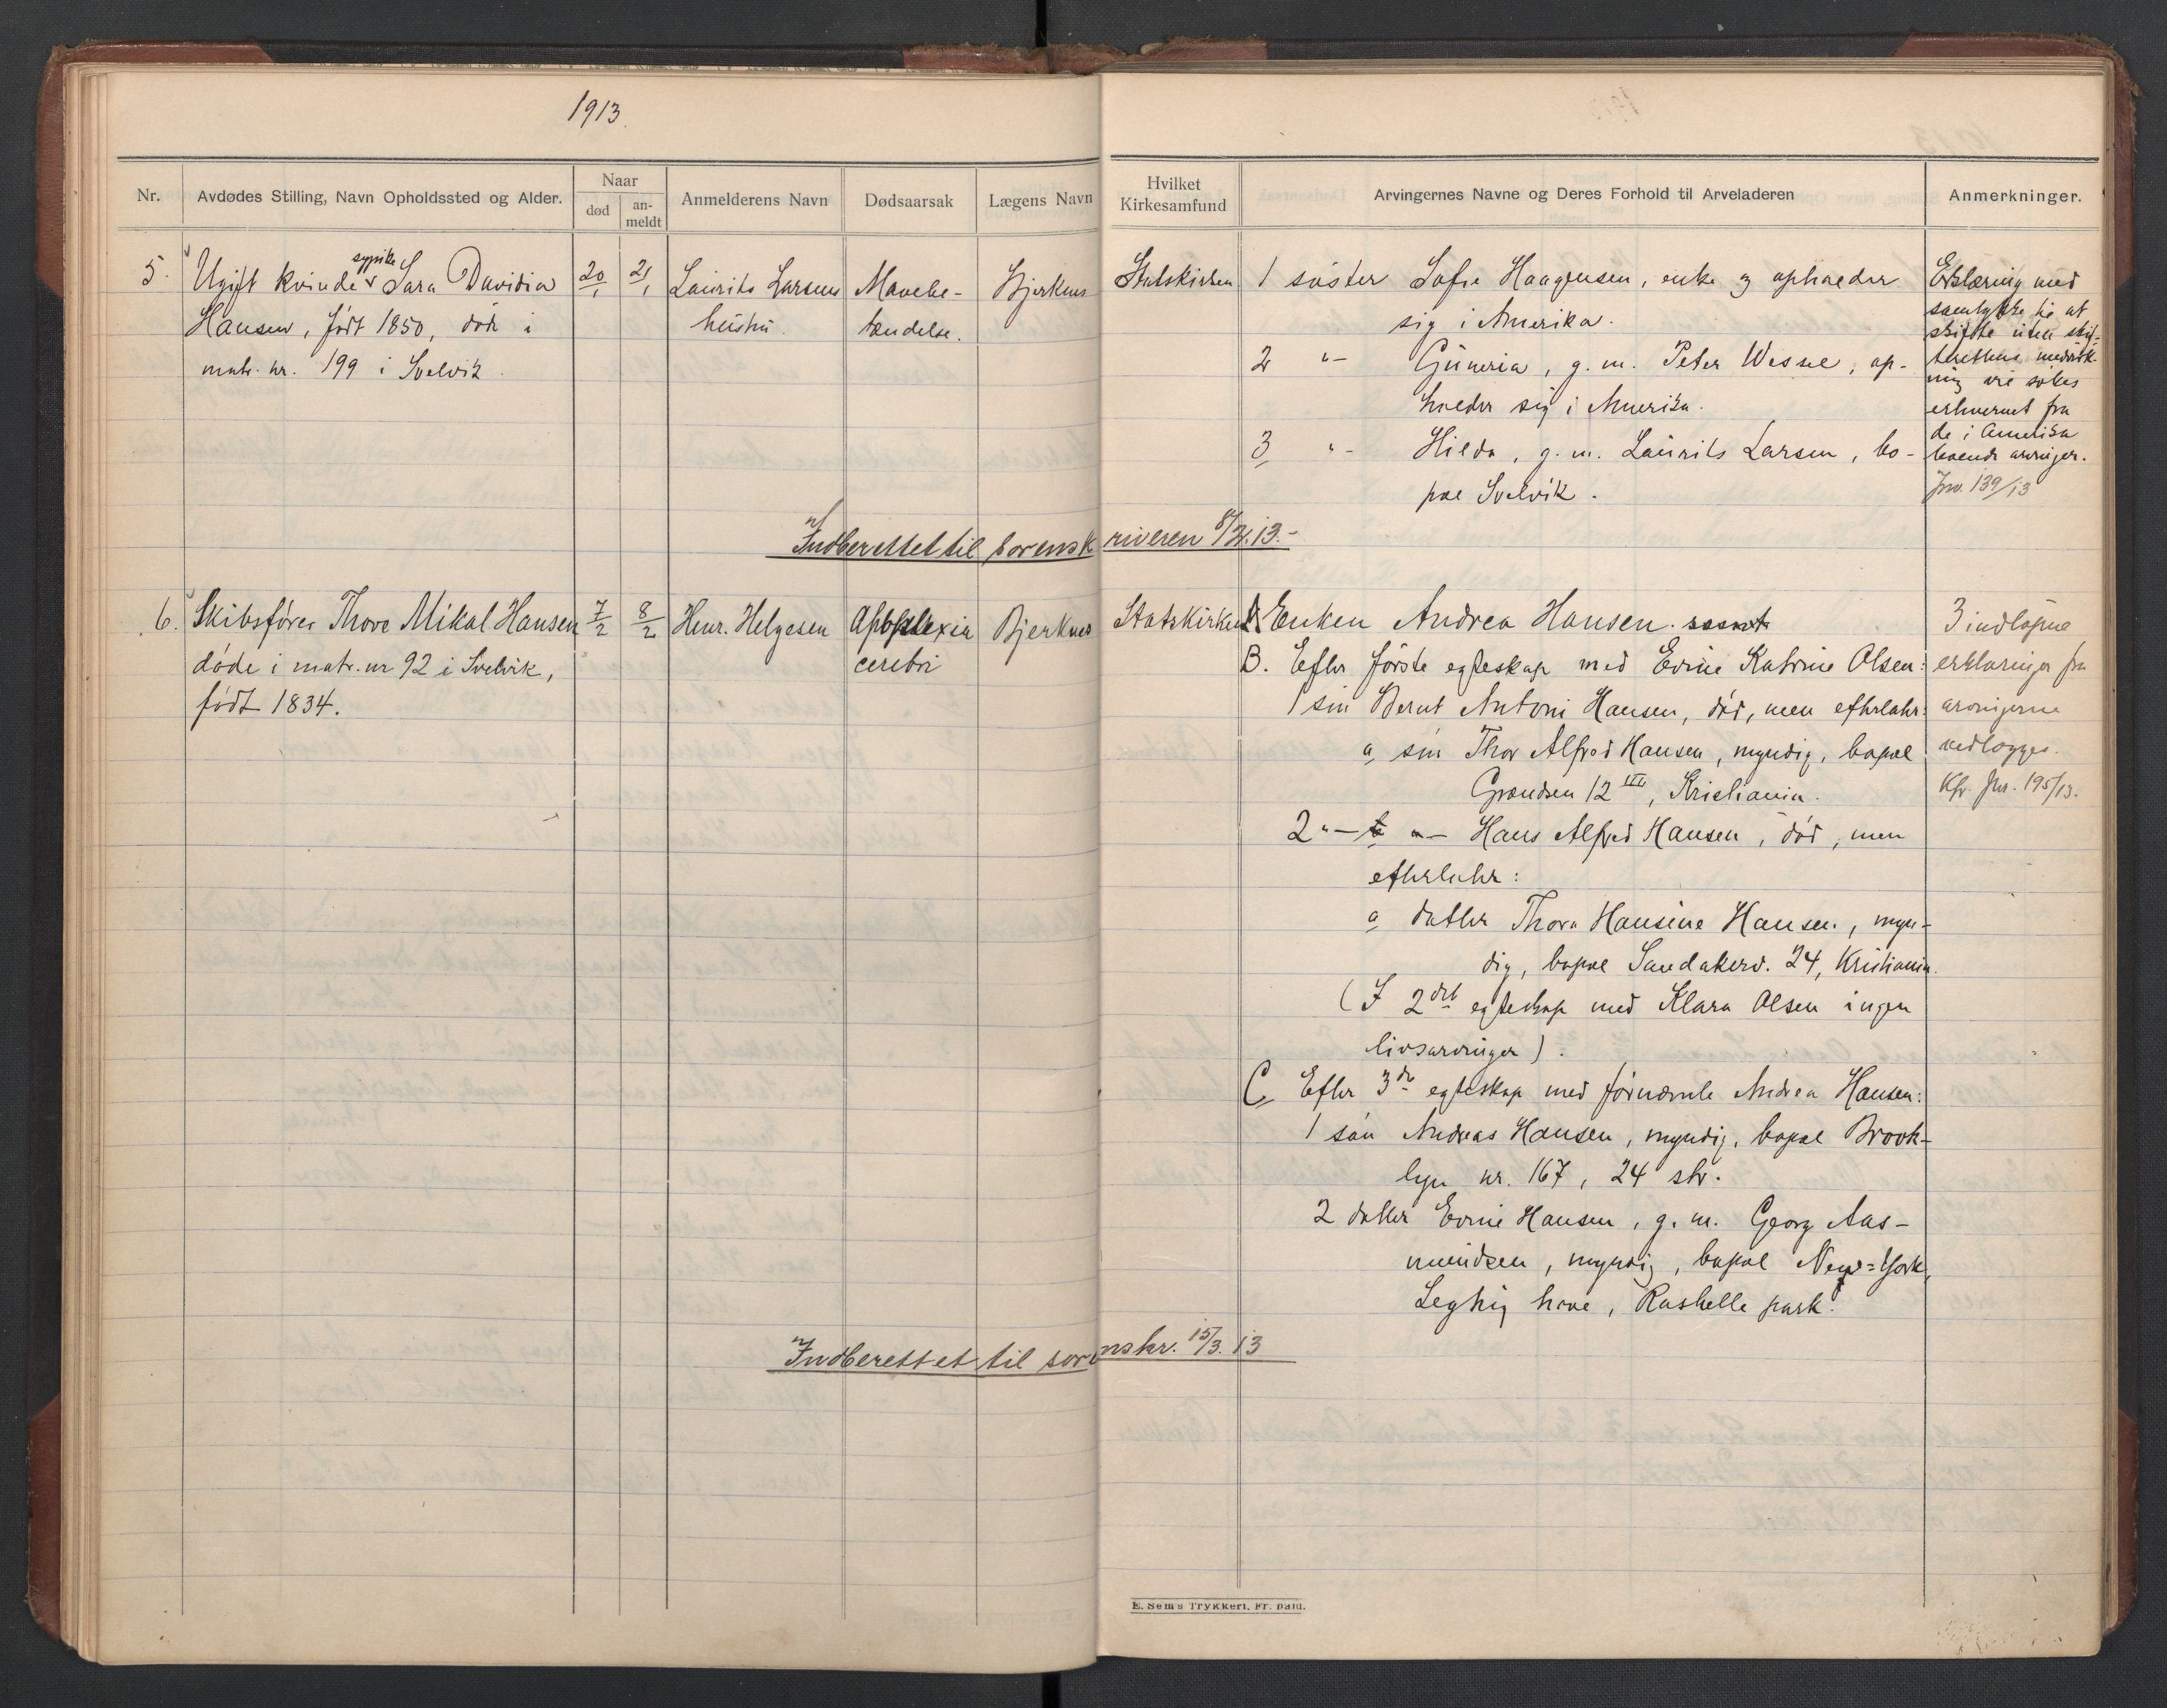 1913.
Nr.
Avdødes Stilling, Navn Opholdssted og Alder.
Naar
død
an-
meldt
Anmelderens Navn
Dødsaarsak
Lægens Navn
Hvilket
Kirkesamfund
Arvingernes Navne og Deres Forhold til Arveladeren
Anmerkninger.
5.
sypike
Ugift kvinde Sara Davidia
Hansen, født 1850, død i
matr. nr. 199 i Svelvik.
20/1
21/1
Laurits Larsens
hustru.
Mavebe-
tændelse.
Bjerknes
Statskirken
1 søster Sofie Haagensen, enke og opholder
sig i Amerika.
2 "- Guneria, g. m. Peter Wessel, op-
holder sig i Amerika.
3 "- Hilda, g. m. Laurits Larsen, bo-
pæl Svelvik.
Erklæring med
samtykke til at
skifte uten skif-
terettens medvirk-
ning vil søkes
erhvervet fra
de i Amerika
boende arvinger.
Jnr. 139/13
Indberettet til sorenskriveren 8/2.13.-
6.
Skibsfører Thore Mikal Hansen
døde i matr. nr 92 i Svelvik,
født 1834.
7/2
8/2
Henr. Helgesen
Apoplexia
cerebri
Bjerknes
Statskirken
A Enken Andrea Hansen.
B. Efter første egteskap med Evine Katrine Olsen:
1 søn Bernt Antoni Hansen, død, men efterlater:
a, søn Thor Alfred Hansen, myndig, bopæl
Grændsen 12 III, Kristiania.
2 "- "- Hans Alfred Hansen, død, men
efterlater:
a datter Thora Hansine Hansen, myn-
dig, bopæl Sandakerv. 24, Kristiania.
(I 2det egteskap med Klara Olsen ingen
livsarvinger).
C, Efter 3de egteskap med førnævnte Andrea Hansen:
1 søn Andreas Hansen, myndig, bopæl Brook-
lyn nr. 167, 24 str.
2 datter Evine Hansen, g. m. Georg Aas-
mundsen, myndig, bopæl New=York,
Leghig have, Rashelle park.
3 indløpne
erklæringer fra
arvingerne
vedlægges.
Kfr. Jnr. 195/13.
Indberettet til sorenskr. 15/3.13
E. Sem's Trykkeri, Fr.hald.